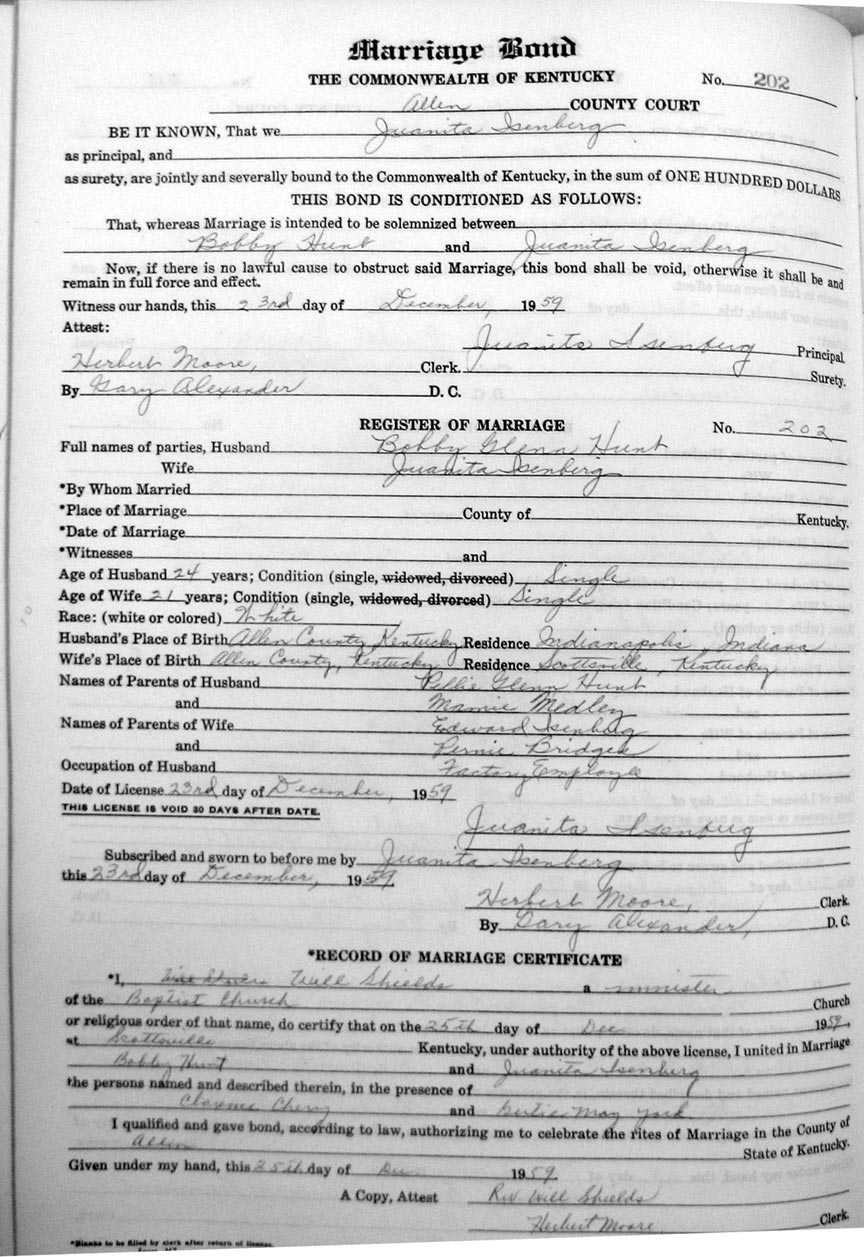 Marriage Bond
THE COMMONWEALTH OF KENTUCKY No. 202
Allen COUNTY COURT
BE IT KNOWN, That we Juanita Isenberg
as principal, and
as surety, are jointly and severally bound to the Commonwealth of Kentucky, in the sum of ONE HUNDRED DOLLARS
THIS BOND IS CONDITIONED AS FOLLOWS:
That, whereas Marriage is intended to be solemnized between
Bobby Hunt and Juanita Isenberg
Now, if there is no lawful cause to obstruct said Marriage, this bond shall be void, otherwise it shall be and
remain in full force and effect.
Witness our hands, this 23rd day of December, 1959
Attest:
Juanita Isenberg Principal
Herbert Moore, Clerk. Surety.
By Gary Alexander D. C.
REGISTER OF MARRIAGE No. 202
Full names of parties, Husband Bobby Glenn Hunt
Wife Juanita Isenberg
*By Whom Married
*Place of Marriage County of Kentucky.
*Date of Marriage
*Witnesses and
Age of Husband 24 years; Condition (single, widowed, divorced) Single
Age of Wife 21 years; Condition (single, widowed, divorced) Single
Race: (white or colored) White
Husband's Place of Birth Allen County Kentucky Residence Indianapolis, Indiana
Wife's Place of Birth Allen County, Kentucky Residence Scottsville, Kentucky
Names of Parents of Husband Glenn Hunt
and Mamie Medley
Names of Parents of Wife Edward Isenberg
and Bridges
Occupation of Husband Factory Employee
Date of License 23rd day of December, 1959
THIS LICENSE IS VOID 30 DAYS AFTER DATE.
Juanita Isenberg
Subscribed and sworn to before me by Juanita Isenberg
this 23rd day of December, 1959.
Herbert Moore, Clerk.
By Gary Alexander, D. C.
*RECORD OF MARRIAGE CERTIFICATE
*I, Will Shields a minister
of the Baptist Church Church
or religious order of that name, do certify that on the 25th day of Dec 1959,
at Scottsville Kentucky, under authority of the above license, I united in Marriage
Bobby Hunt and Juanita Isenberg
the persons named and described therein, in the presence of
Clarence Cherry and Gertie May York
I qualified and gave bond, according to law, authorizing me to celebrate the rites of Marriage in the County of
Allen State of Kentucky.
Given under my hand, this 25th day of Dec 1959.
A Copy, Attest Rev. Will Shields
Herbert Moore Clerk.
*Blanks to be filled by clerk after return of license.